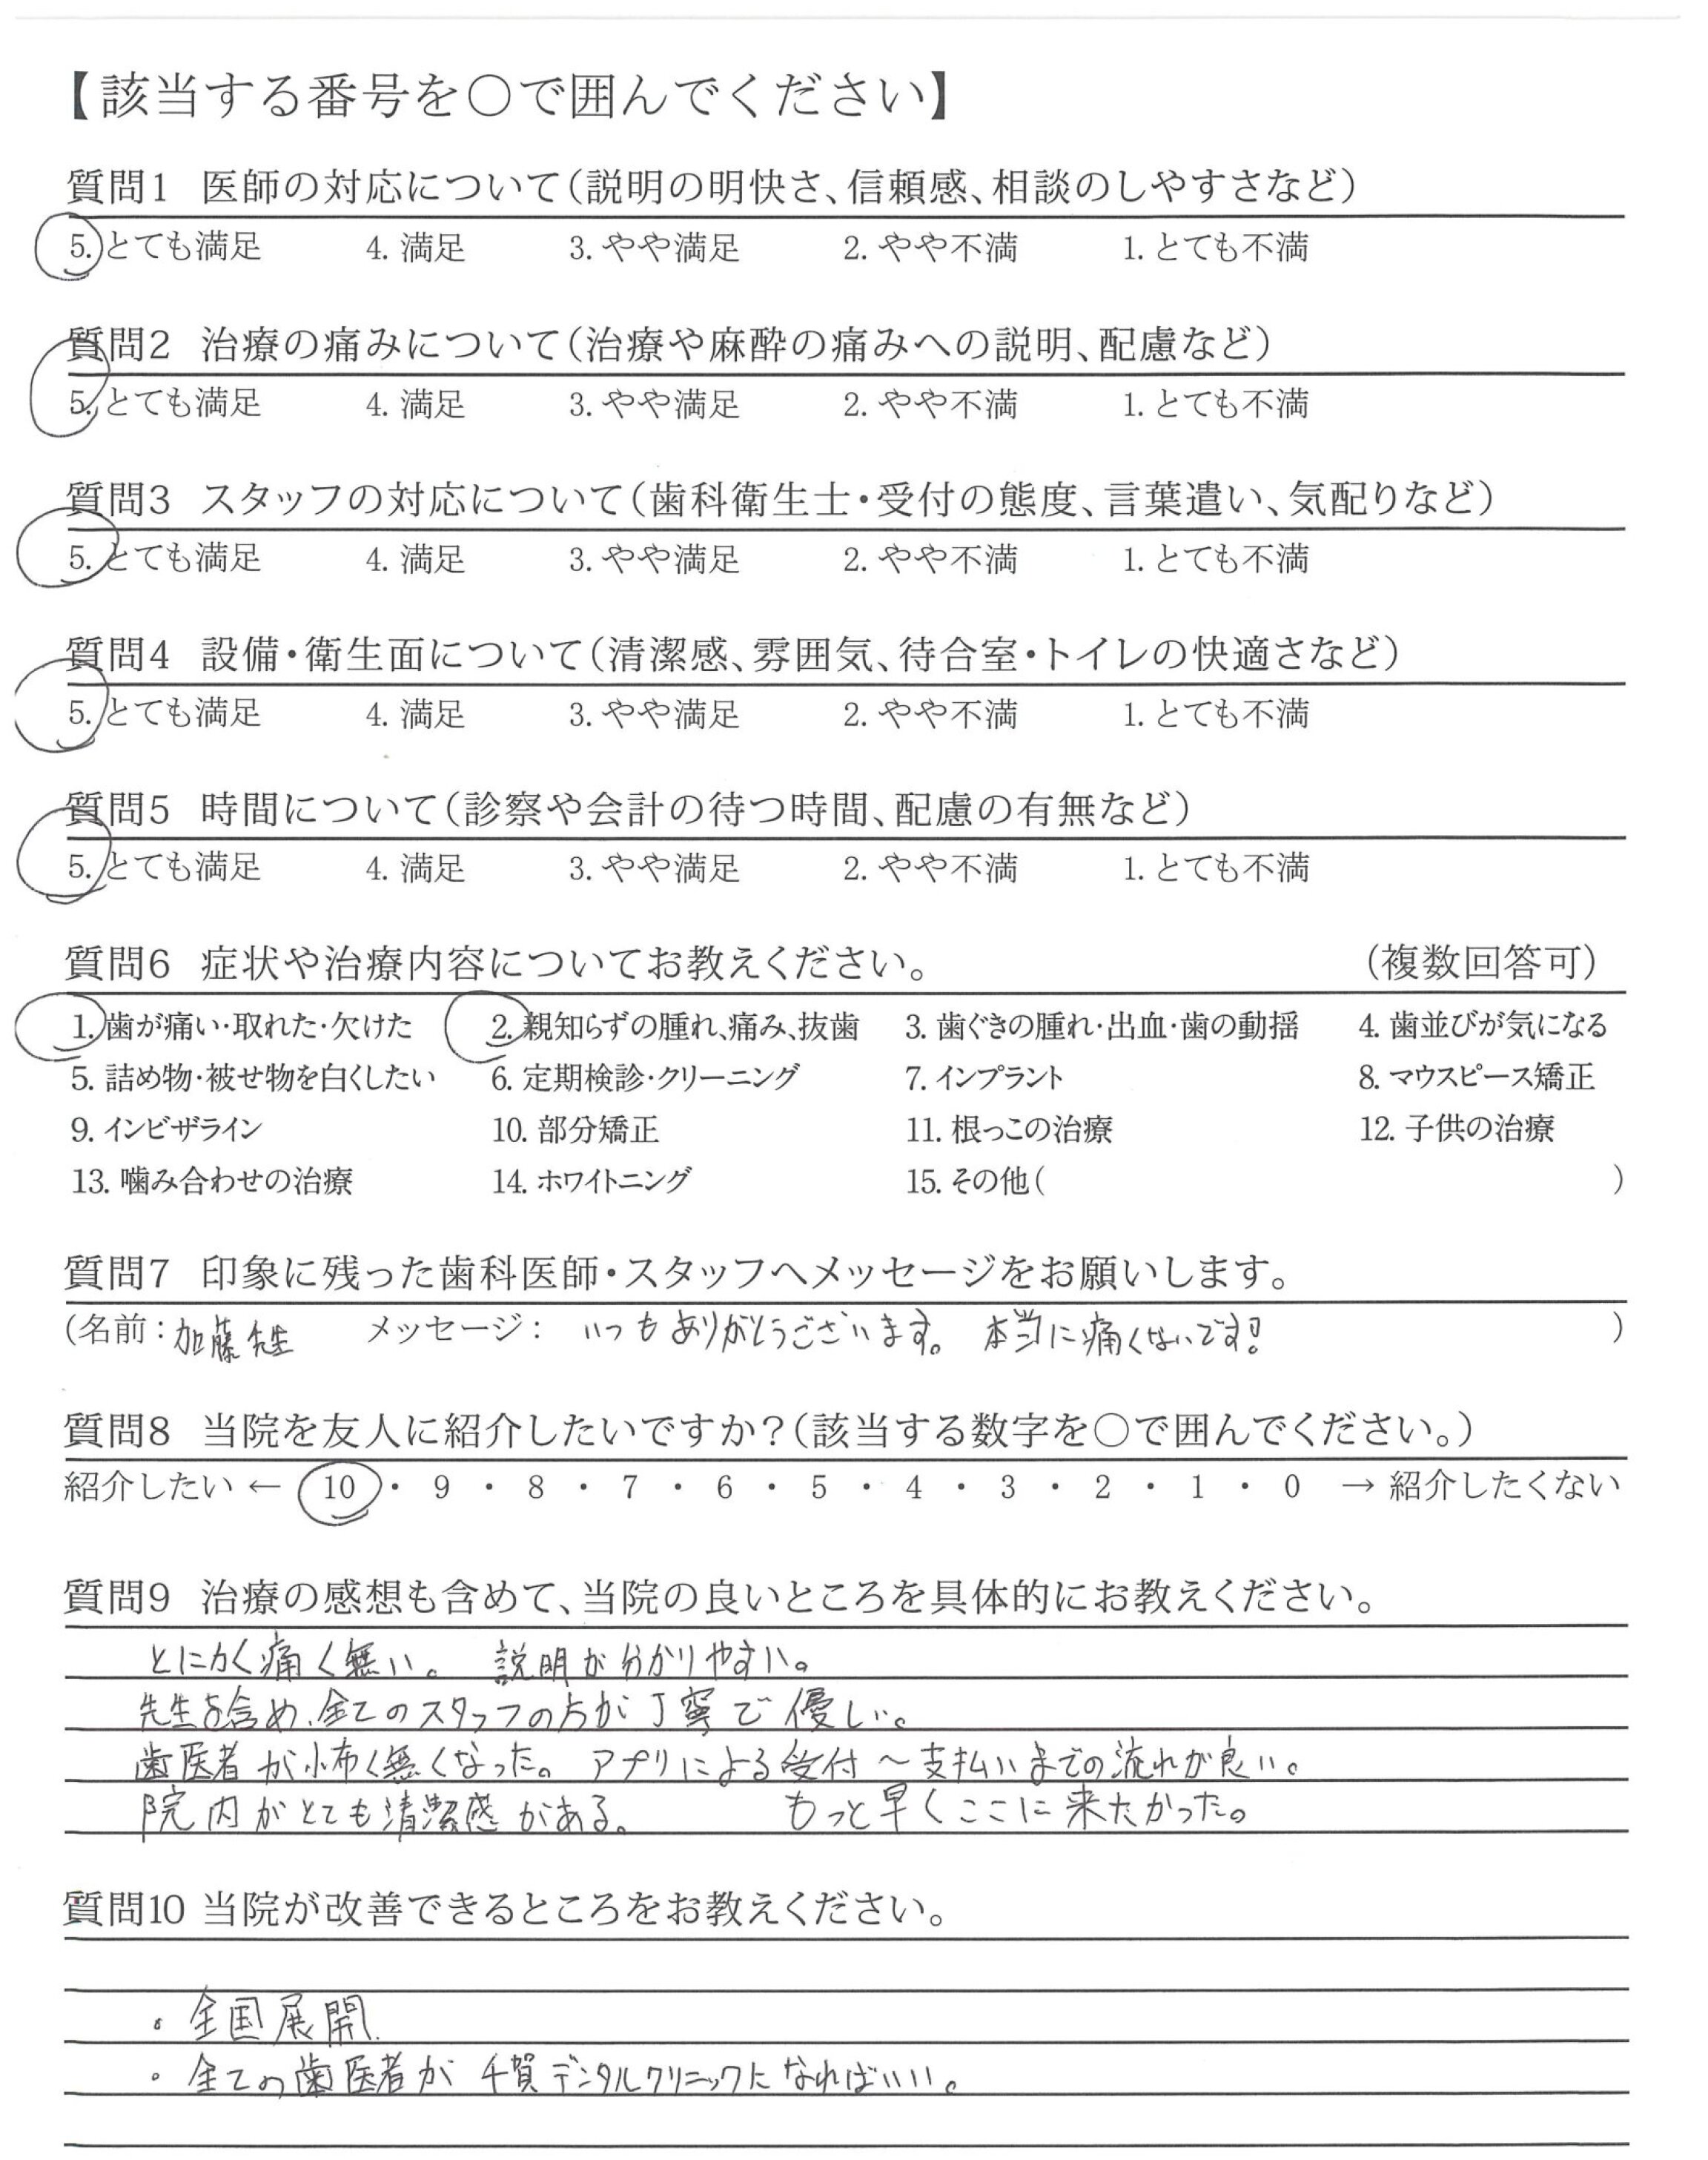 【該当する番号を○で囲んでください】
質問1 医師の対応について(説明の明快さ、信頼感、相談のしやすさなど)
5. とても満足 4. 満足 3. やや満足 2. やや不満 1. とても不満
質問2 治療の痛みについて(治療や麻酔の痛みへの説明、配慮など)
5. とても満足 4. 満足 3. やや満足 2. やや不満 1. とても不満
質問3 スタッフの対応について(歯科衛生士・受付の態度、言葉遣い、気配りなど)
5. とても満足 4. 満足 3. やや満足 2. やや不満 1. とても不満
質問4 設備・衛生面について(清潔感、雰囲気、待合室・トイレの快適さなど)
5. とても満足 4. 満足 3. やや満足 2. やや不満 1. とても不満
質問5 時間について(診察や会計の待つ時間、配慮の有無など)
5. とても満足 4. 満足 3. やや満足 2. やや不満 1. とても不満
質問6 症状や治療内容についてお教えください。 (複数回答可)
1. 歯が痛い・取れた・欠けた 2. 親知らずの腫れ、痛み、抜歯 3. 歯ぐきの腫れ・出血・歯の動揺 4. 歯並びが気になる
5. 詰め物・被せ物を白くしたい 6. 定期検診・クリーニング 7. インプラント 8. マウスピース矯正
9. インビザライン 10. 部分矯正 11. 根っこの治療 12. 子供の治療
13. 噛み合わせの治療 14. ホワイトニング 15. その他( )
質問7 印象に残った歯科医師・スタッフへメッセージをお願いします。
(名前:加藤先生 メッセージ: いつもありがとうございます。 本当に痛くないです! )
質問8 当院を友人に紹介したいですか?(該当する数字を○で囲んでください。)
紹介したい ← 10 ・ 9 ・ 8 ・ 7 ・ 6 ・ 5 ・ 4 ・ 3 ・ 2 ・ 1 ・ 0 → 紹介したくない
質問9 治療の感想も含めて、当院の良いところを具体的にお教えください。
とにかく痛く無い。 説明が分かりやすい。
先生を含め、全てのスタッフの方が丁寧で優しい。
歯医者が怖く無くなった。 アプリによる受付~支払いまでの流れが良い。
院内がとても清潔感がある。 もっと早くここに来たかった。
質問10 当院が改善できるところをお教えください。
・全国展開.
・全ての歯医者が千賀デンタルクリニックになればいい。